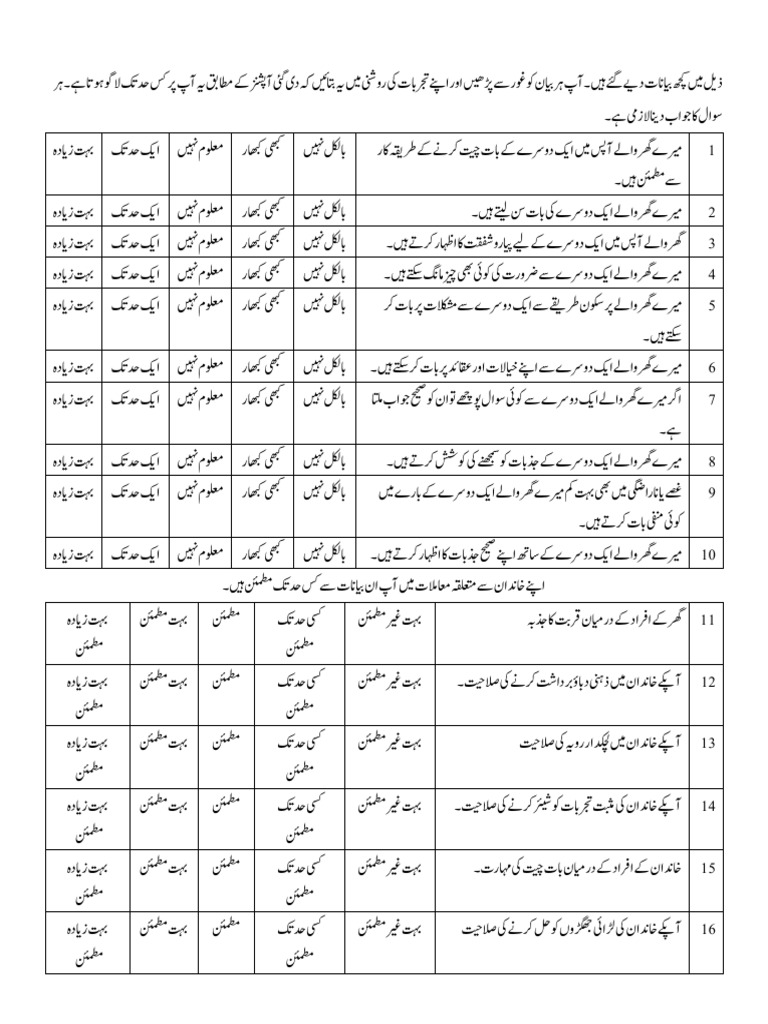 ذیل میں کچھ بیانات دیے گئے ہیں۔ آپ ہر بیان کو غور سے پڑھیں اور اپنے تجربات کی روشنی میں یہ بتائیں کہ دی گئی آپشنز کے مطابق یہ آپ پر کس حد تک لاگو ہوتا ہے۔ ہر
سوال کا جواب دینا لازمی ہے۔
1 میرے گھر والے آپس میں ایک دوسرے کے بات چیت کرنے کے طریقہ کار بالکل نہیں کبھی کبھار معلوم نہیں ایک حد تک بہت زیادہ
سے مطمئن ہیں۔
2 میرے گھر والے ایک دوسرے کی بات سن لیتے ہیں۔ بالکل نہیں کبھی کبھار معلوم نہیں ایک حد تک بہت زیادہ
3 گھر والے آپس میں ایک دوسرے کے لیے پیار و شفقت کا اظہار کرتے ہیں۔ بالکل نہیں کبھی کبھار معلوم نہیں ایک حد تک بہت زیادہ
4 میرے گھر والے ایک دوسرے سے ضرورت کی کوئی بھی چیز مانگ سکتے ہیں۔ بالکل نہیں کبھی کبھار معلوم نہیں ایک حد تک بہت زیادہ
5 میرے گھر والے پر سکون طریقے سے ایک دوسرے سے مشکلات پر بات کر بالکل نہیں کبھی کبھار معلوم نہیں ایک حد تک بہت زیادہ
سکتے ہیں۔
6 میرے گھر والے ایک دوسرے سے اپنے خیالات اور عقائد پر بات کر سکتے ہیں۔ بالکل نہیں کبھی کبھار معلوم نہیں ایک حد تک بہت زیادہ
7 اگر میرے گھر والے ایک دوسرے سے کوئی سوال پوچھے تو ان کو صحیح جواب ملتا بالکل نہیں کبھی کبھار معلوم نہیں ایک حد تک بہت زیادہ
ہے۔
8 میرے گھر والے ایک دوسرے کے جذبات کو سمجھنے کی کوشش کرتے ہیں۔ بالکل نہیں کبھی کبھار معلوم نہیں ایک حد تک بہت زیادہ
9 غصے یا ناراضگی میں بھی بہت کم میرے گھر والے ایک دوسرے کے بارے میں بالکل نہیں کبھی کبھار معلوم نہیں ایک حد تک بہت زیادہ
کوئی منفی بات کرتے ہیں۔
10 میرے گھر والے ایک دوسرے کے ساتھ اپنے صحیح جذبات کا اظہار کرتے ہیں۔ بالکل نہیں کبھی کبھار معلوم نہیں ایک حد تک بہت زیادہ
اپنے خاندان سے متعلقہ معاملات میں آپ ان بیانات سے کس حد تک مطمئن ہیں۔
11 گھر کے افراد کے درمیان قربت کا جذبہ بہت غیر مطمئن کسی حد تک مطمئن بہت مطمئن بہت زیادہ
مطمئن مطمئن
12 آپکے خاندان میں ذہنی دباؤ برداشت کرنے کی صلاحیت۔ بہت غیر مطمئن کسی حد تک مطمئن بہت مطمئن بہت زیادہ
مطمئن مطمئن
13 آپکے خاندان میں لچکدار رویہ کی صلاحیت بہت غیر مطمئن کسی حد تک مطمئن بہت مطمئن بہت زیادہ
مطمئن مطمئن
14 آپکے خاندان کی مثبت تجربات کو شیئر کرنے کی صلاحیت۔ بہت غیر مطمئن کسی حد تک مطمئن بہت مطمئن بہت زیادہ
مطمئن مطمئن
15 خاندان کے افراد کے درمیان بات چیت کی مہارت۔ بہت غیر مطمئن کسی حد تک مطمئن بہت مطمئن بہت زیادہ
مطمئن مطمئن
16 آپکے خاندان کی لڑائی جھگڑوں کو حل کرنے کی صلاحیت بہت غیر مطمئن کسی حد تک مطمئن بہت مطمئن بہت زیادہ
مطمئن مطمئن